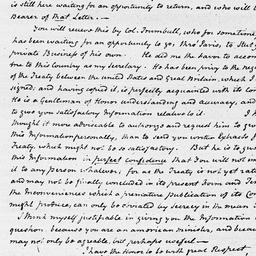 is still here waiting for an opportunity to return, and who will
Bearer of That Letter. —
You will receive this by Col. Trumbull, who for sometime
has been waiting for an opportunity to go, thro' Paris, to
private Business of his own. He did me the honor to accom
me to this Country as my Secretary. He has been privy to the neg
of the Treaty between the united States and Great Britain, which I
signed, and having copied it, is perfectly acquainted with its con
He is a Gentleman of Honor understanding and accuracy, and
to give you satisfactory Information relative to it. I
thought it more adviseable to authorize and request him to give
this Information personally, than to send you written Extracts
Treaty, which might not be so satisfactory. But he is to give
this Information in perfect confidence that You will not
it to any person whatever; for as the Treaty is not yet rat
and may not be finally concluded in its present Form and
the Inconveniences which a premature publication of its Con
might produce, can only be obviated by secrecy in the mean
I think myself justifiable in giving you the Information
question, because you are an american minister, and
may not only be agreable, but perhaps useful —
I have the Honor to be with great Respect,